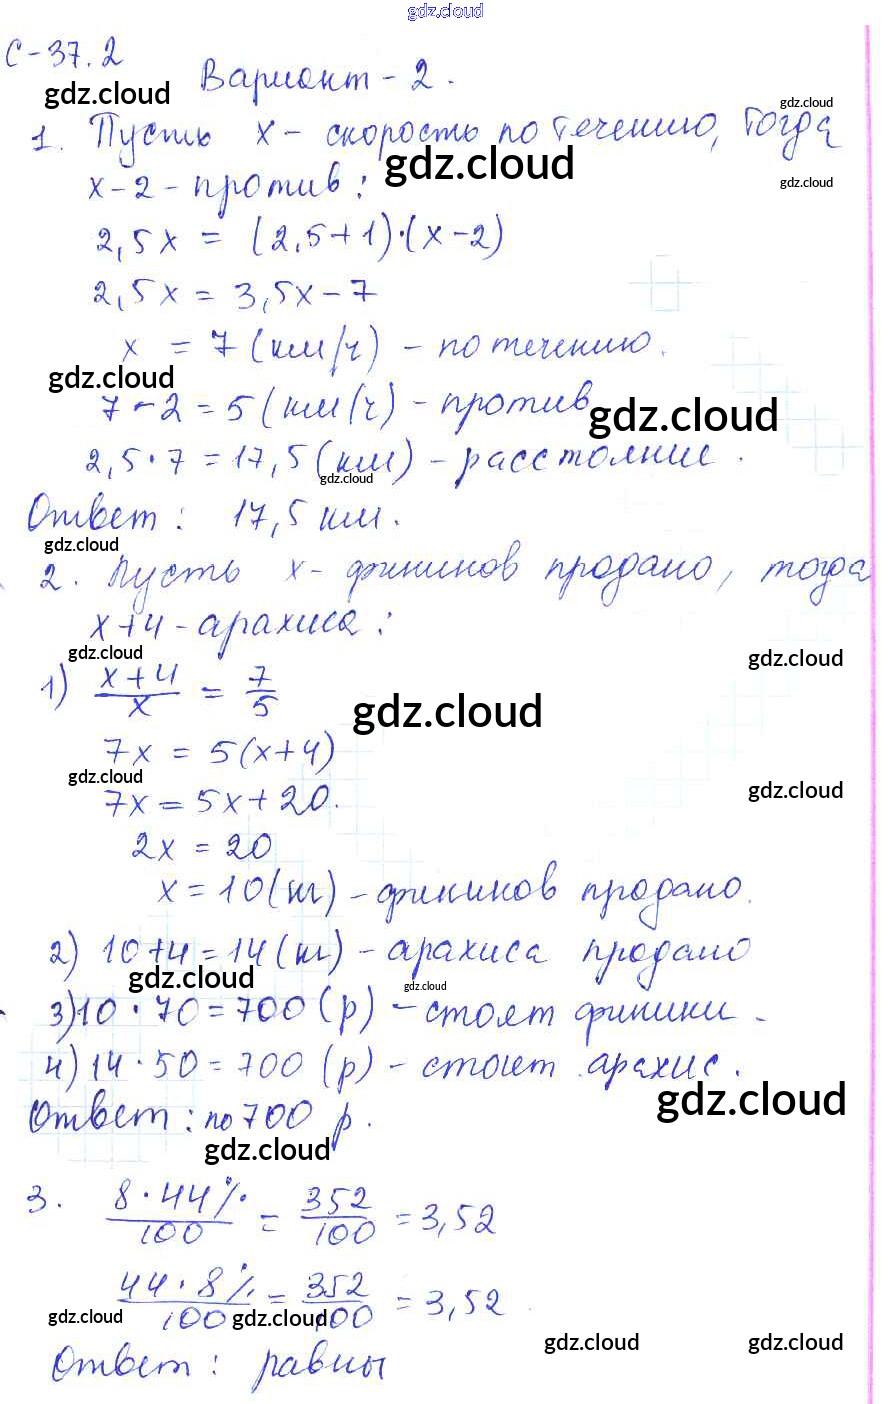 gdz.cloud
С-37.2
gdz.cloud
Вариант-2.
gdz.cloud
1. Пусть x - скорость по течению, тогда
gdz.cloud
x-2 - против:
gdz.cloud
2,5x = (2,5+1)·(x-2)
2,5x = 3,5x-7
x = 7 (км/ч) - по течению.
gdz.cloud
7-2 = 5 (км/ч) - против
gdz.cloud
2,5·7 = 17,5 (км) - расстояние.
gdz.cloud
Ответ: 17,5 км.
gdz.cloud
2. Пусть x - фиников продано, тогда
x+4 - арахиса:
gdz.cloud
gdz.cloud
1) (x+4)/x = 7/5
gdz.cloud
7x = 5(x+4)
gdz.cloud
gdz.cloud
7x = 5x+20.
2x = 20
x = 10 (кг) - фиников продано.
2) 10+4 = 14 (кг) - арахиса продано
gdz.cloud
gdz.cloud
3) 10·70 = 700 (р) - стоят финики.
4) 14·50 = 700 (р) - стоит арахис.
gdz.cloud
Ответ: по 700 р.
gdz.cloud
3. 8·44%/100 = 352/100 = 3,52
44·8%/100 = 352/100 = 3,52
gdz.cloud
gdz.cloud
gdz.cloud
gdz.cloud
Ответ: равны